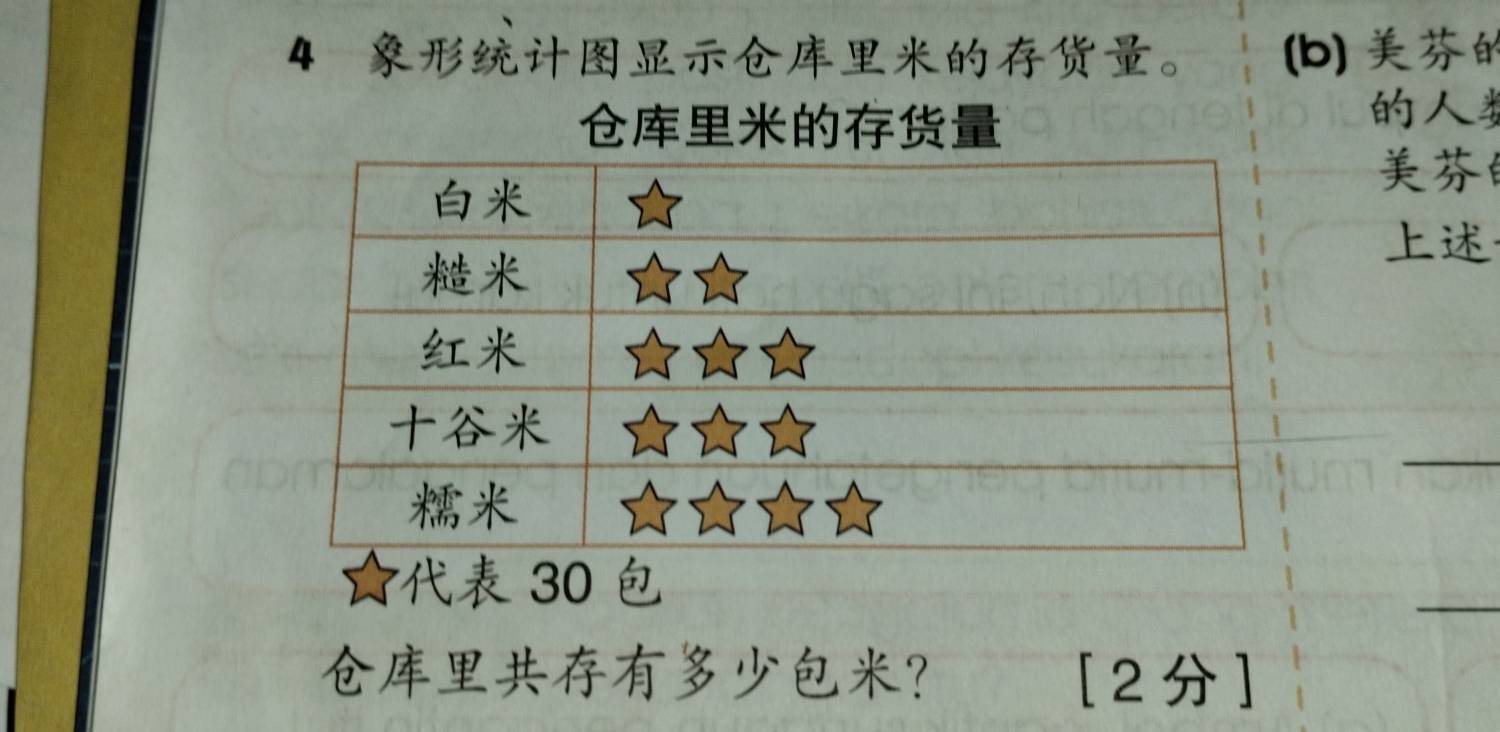 4 象形统计图显示仓库里米的存货量。
仓库里米的存货量
白米
糙米
红米
十谷米
糯米
代表 30 包
仓库里共存有多少包米? [2分]
(b) 美芬的
的人数
美芬的
上述